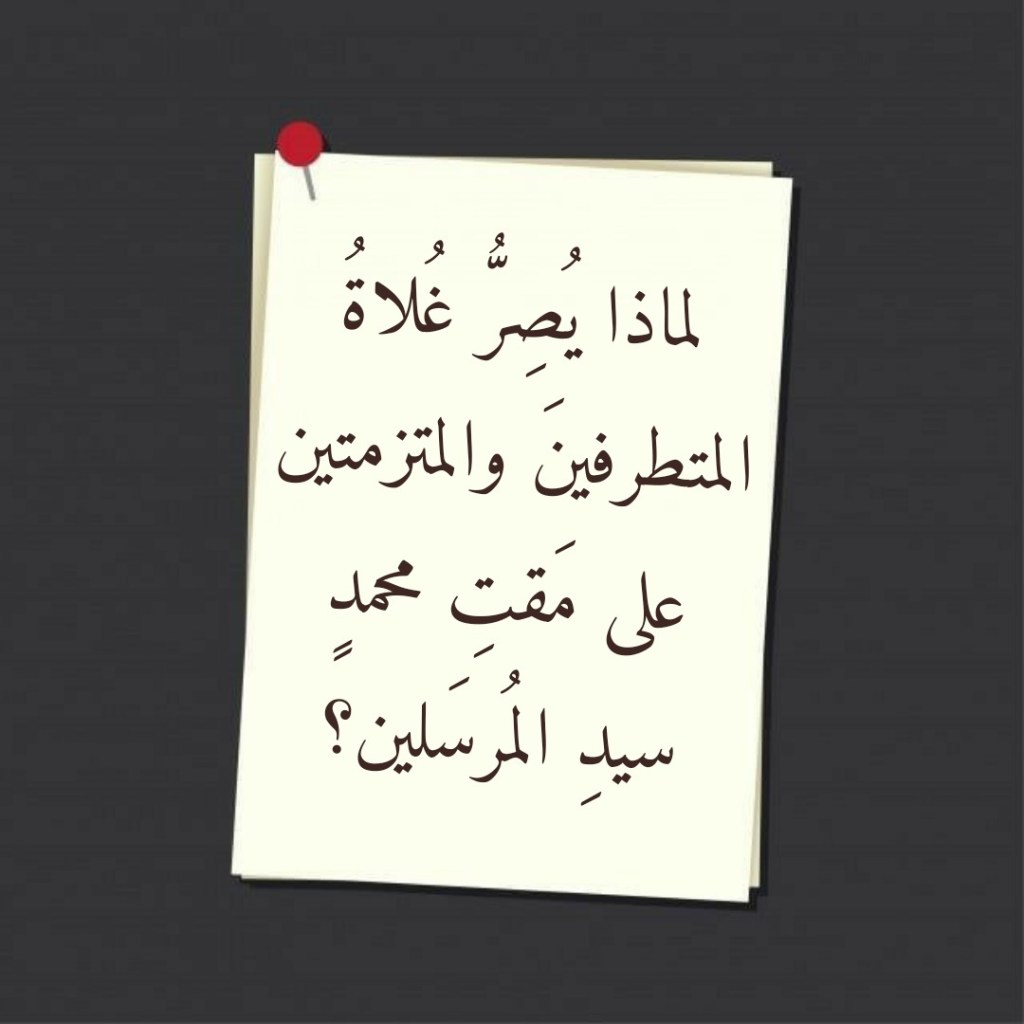 لماذا يُصِرُّ غُلاةُ
المتطرفينَ والمتزمتين
على مَقتِ محمدٍ
سيدِ المُرسَلين؟